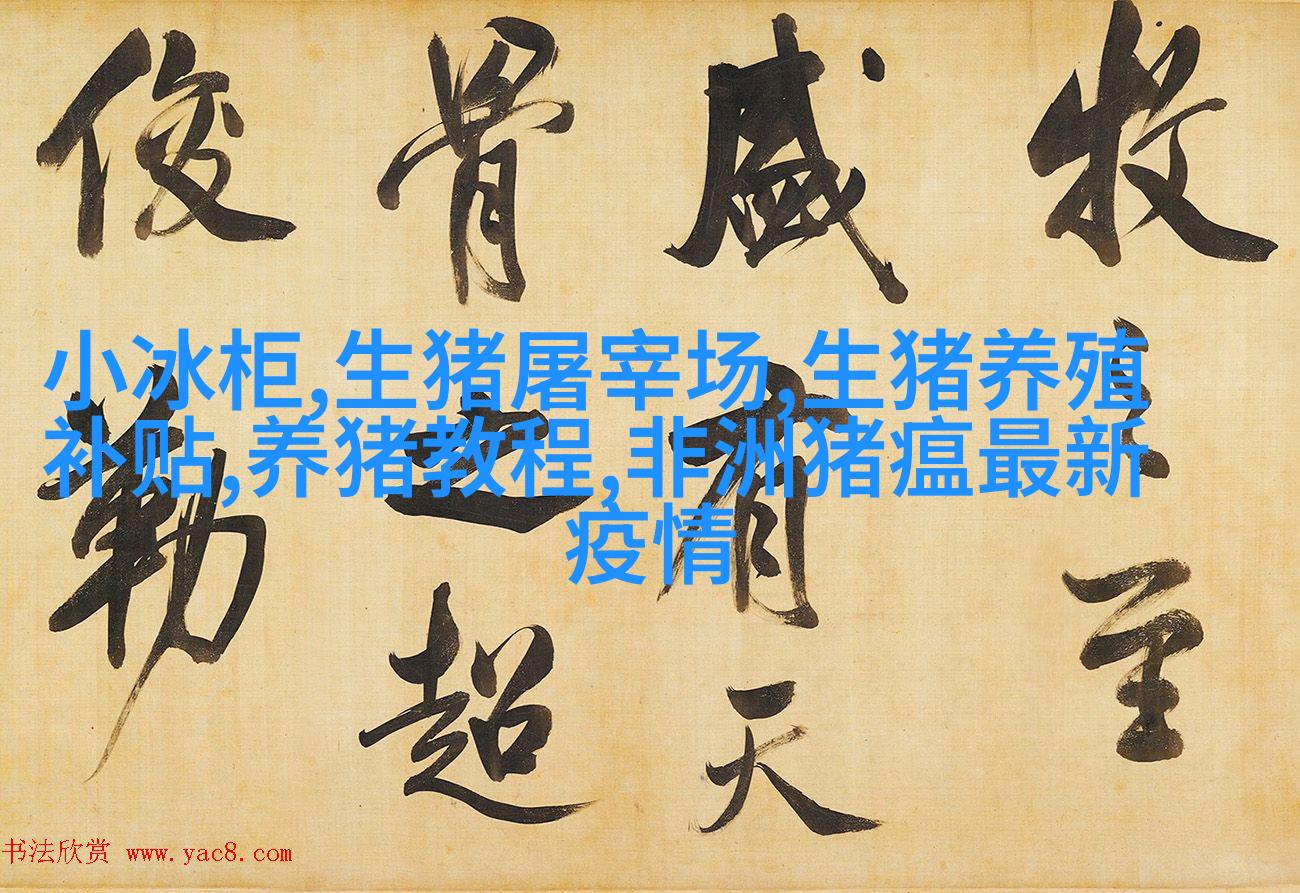 小冰柜,生猪屠宰场,生猪养殖
补贴,养猪教程,非洲猪瘟最新
疫情
牧之至
盛有天
骨之超
俊勒
书法欣赏 www.yac8.com